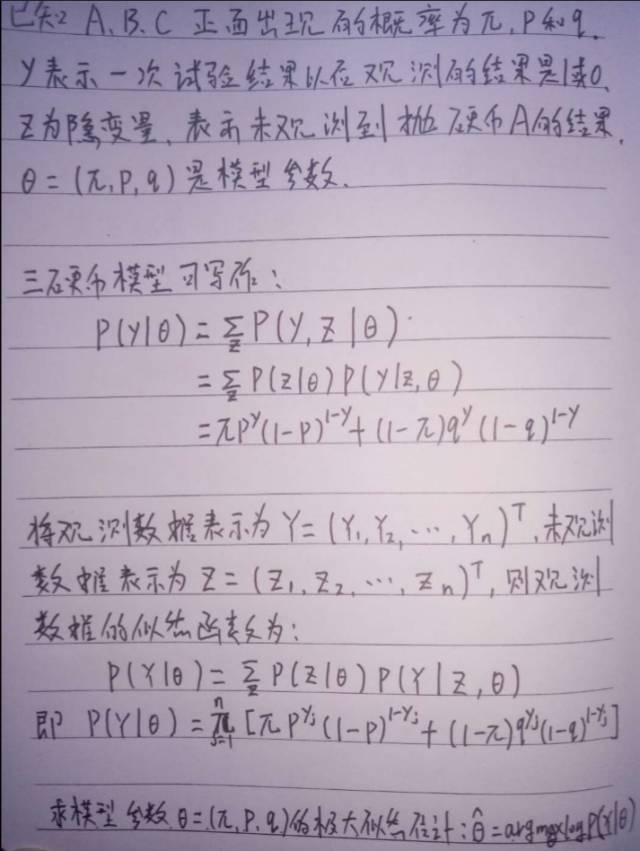 已知 A、B、C 正面出现的概率为π, P和q.
y表示一次试验结果以后观测的结果是1或0,
Z为隐变量, 表示未观测到抛硬币A的结果,
θ = (π, P, q) 是模型参数.
三硬币模型可写作:
P(y|θ) = ∑_z P(y, z|θ)
= ∑_z P(z|θ) P(y|z, θ)
= πp^y(1-P)^{1-y} + (1-π)q^y(1-q)^{1-y}
将观测数据表示为 Y = (Y₁, Y₂, ⋯, Yn)^T, 未观测
数据表示为 Z = (Z₁, Z₂, ⋯, Zn)^T, 则观测
数据的似然函数为:
P(Y|θ) = ∑_z P(Z|θ) P(Y|Z, θ)
即 P(Y|θ) = ∏_{j=1}^n [πP^{yj}(1-P)^{1-yj} + (1-π)q^{yj}(1-q)^{1-yj}]
求模型参数 θ = (π, P, q)的极大似然估计: θ̂ = argmax_θ log P(Y|θ)